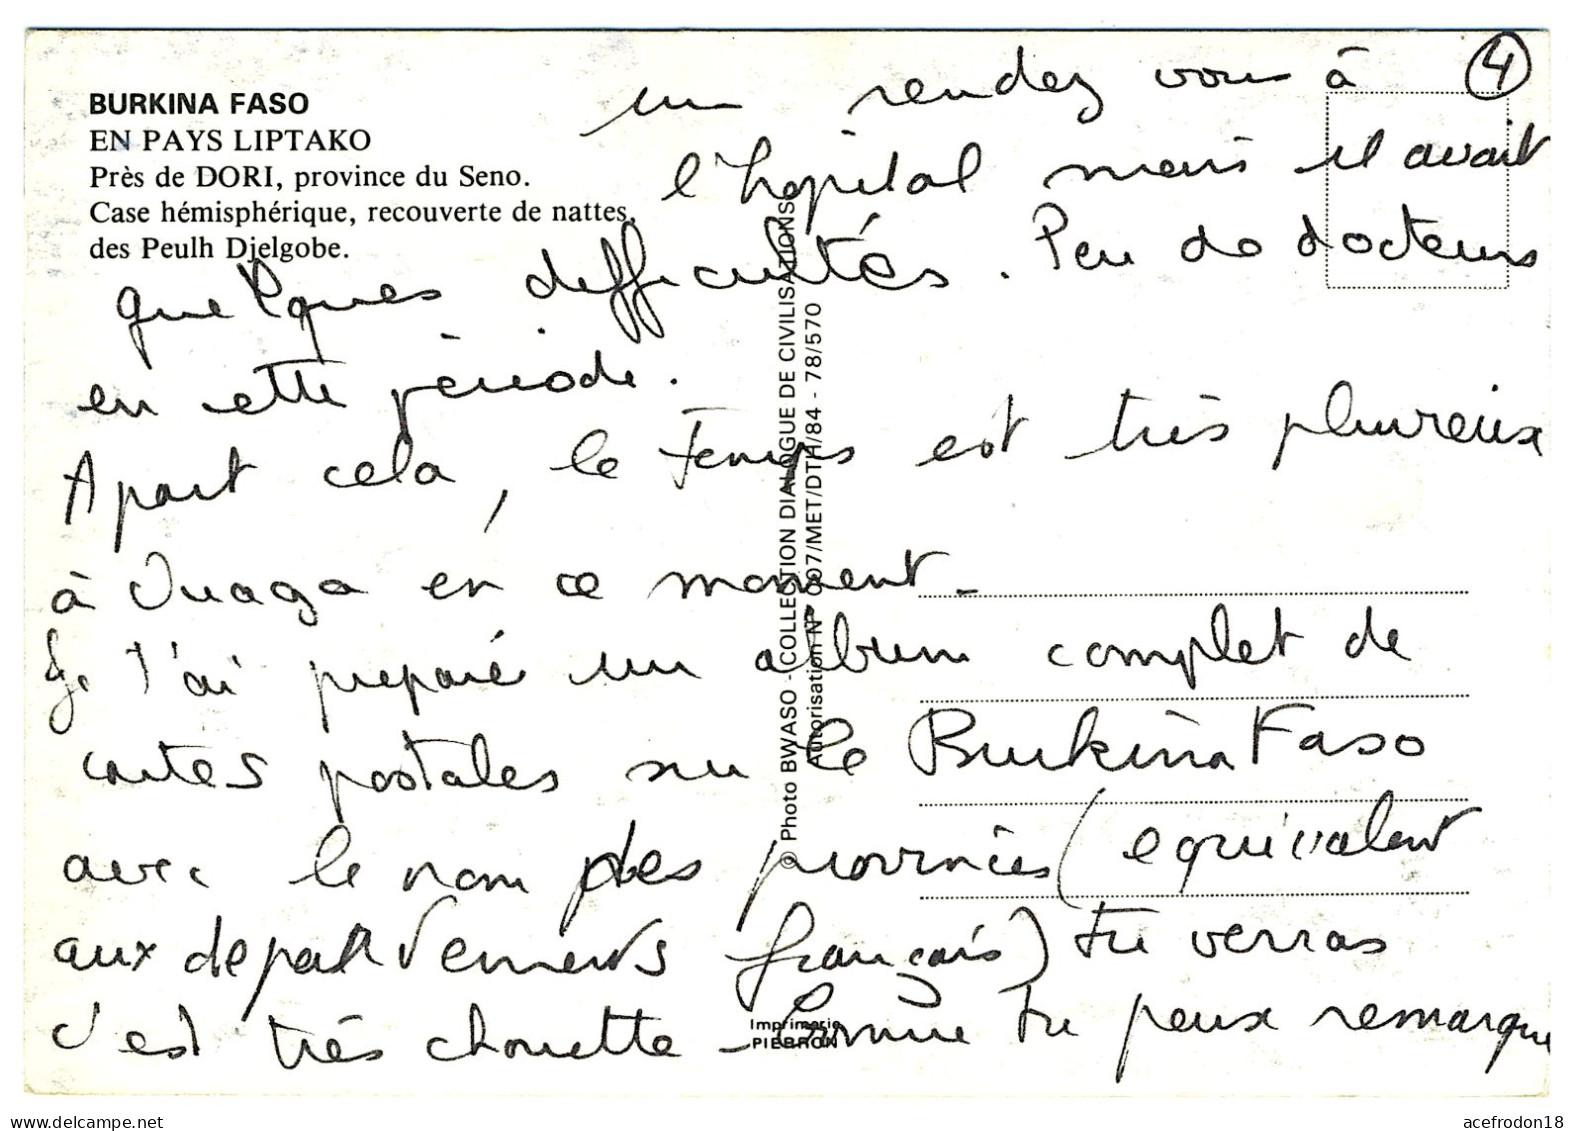 BURKINA FASO
EN PAYS LIPTAKO
Près de DORI, province du Seno.
Case hémisphérique, recouverte de nattes,
des Peulh Djelgobe.
4
un rendez vous à
l'hôpital mais il avait
quelques difficultés. Peu de docteurs
en cette période.
Apart cela, le temps est très pluvreux
à Ouaga en ce moment_
Je t'ai préparé un album complet de
cartes postales sur le Burkina Faso
avec le nom des provinces (equivalent
aux departements français) tu verras
c'est très chouette _ Comme tu peux remarque
© Photo BWASO - COLLECTION DIALOGUE DE CIVILISATIONS
Autorisation N° 007/MET/DTH/84 - 78/570
Imprimerie
PIERRON
acefrodon18